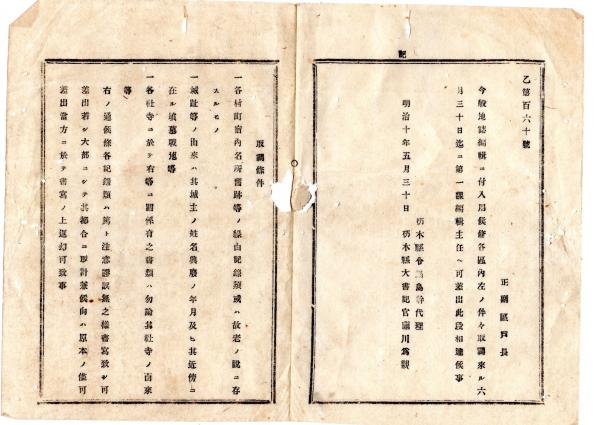 乙第百六十號
正副區戸長
今般地誌編輯ニ付入用候條各區內左ノ件々取調來ル六
月三十日迄ニ第一課編輯主任ヘ可差出此段相達候事
明治十年五月三十日
栃木縣令鍋島幹代理
栃木縣大書記官藤川爲親
記
取調條件
一各村町宿內名所舊跡等ノ緣由記錄類或ハ故老ノ說ニ存
スルモノ
一城趾等ノ由來ハ其城主ノ姓名興廢ノ年月及ヒ其近傍ニ
在ル墳墓戰地等
一各社寺ニ於テ右等ニ關係有之書類ハ勿論其社寺ノ由來
等
右ノ通候條各記錄類ハ篤ト注意謬誤無之樣書寫致シ可
差出若シ大部ニシテ其都合ニ取計兼候向ハ原本ノ儘可
差出當方ニ於テ書寫ノ上返却可致事